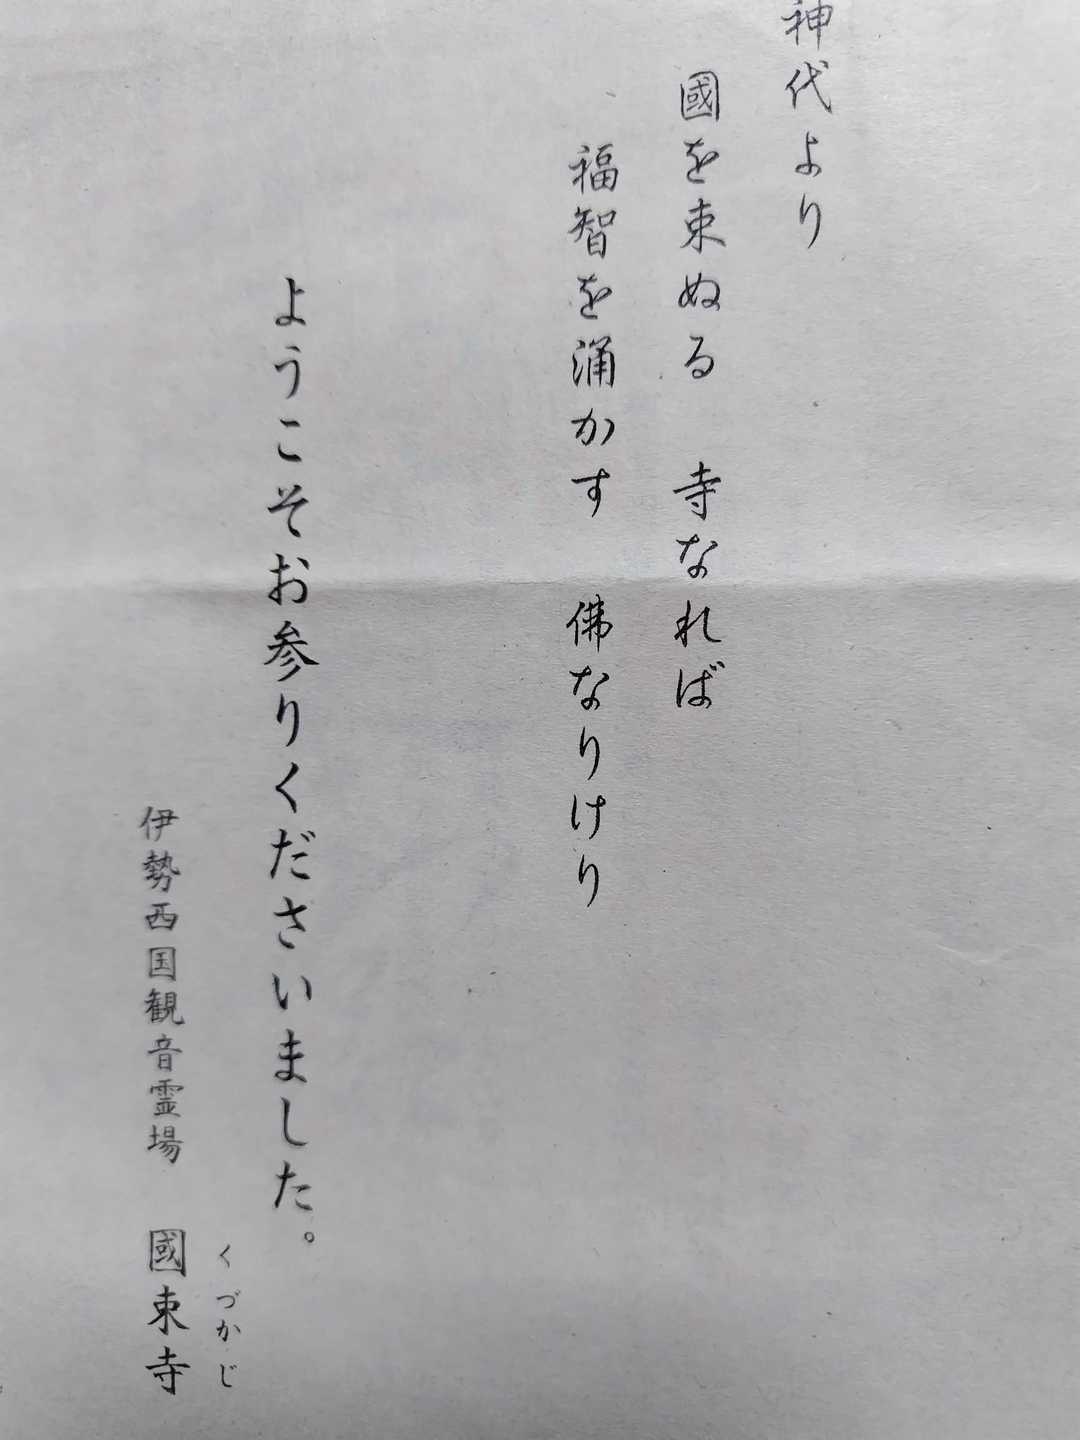 神代より
國を束ぬる 寺なれば
福智を涌かす 佛なりけり
ようこそお参りくださいました。
伊勢西国観音霊場 國束寺
くづかじ